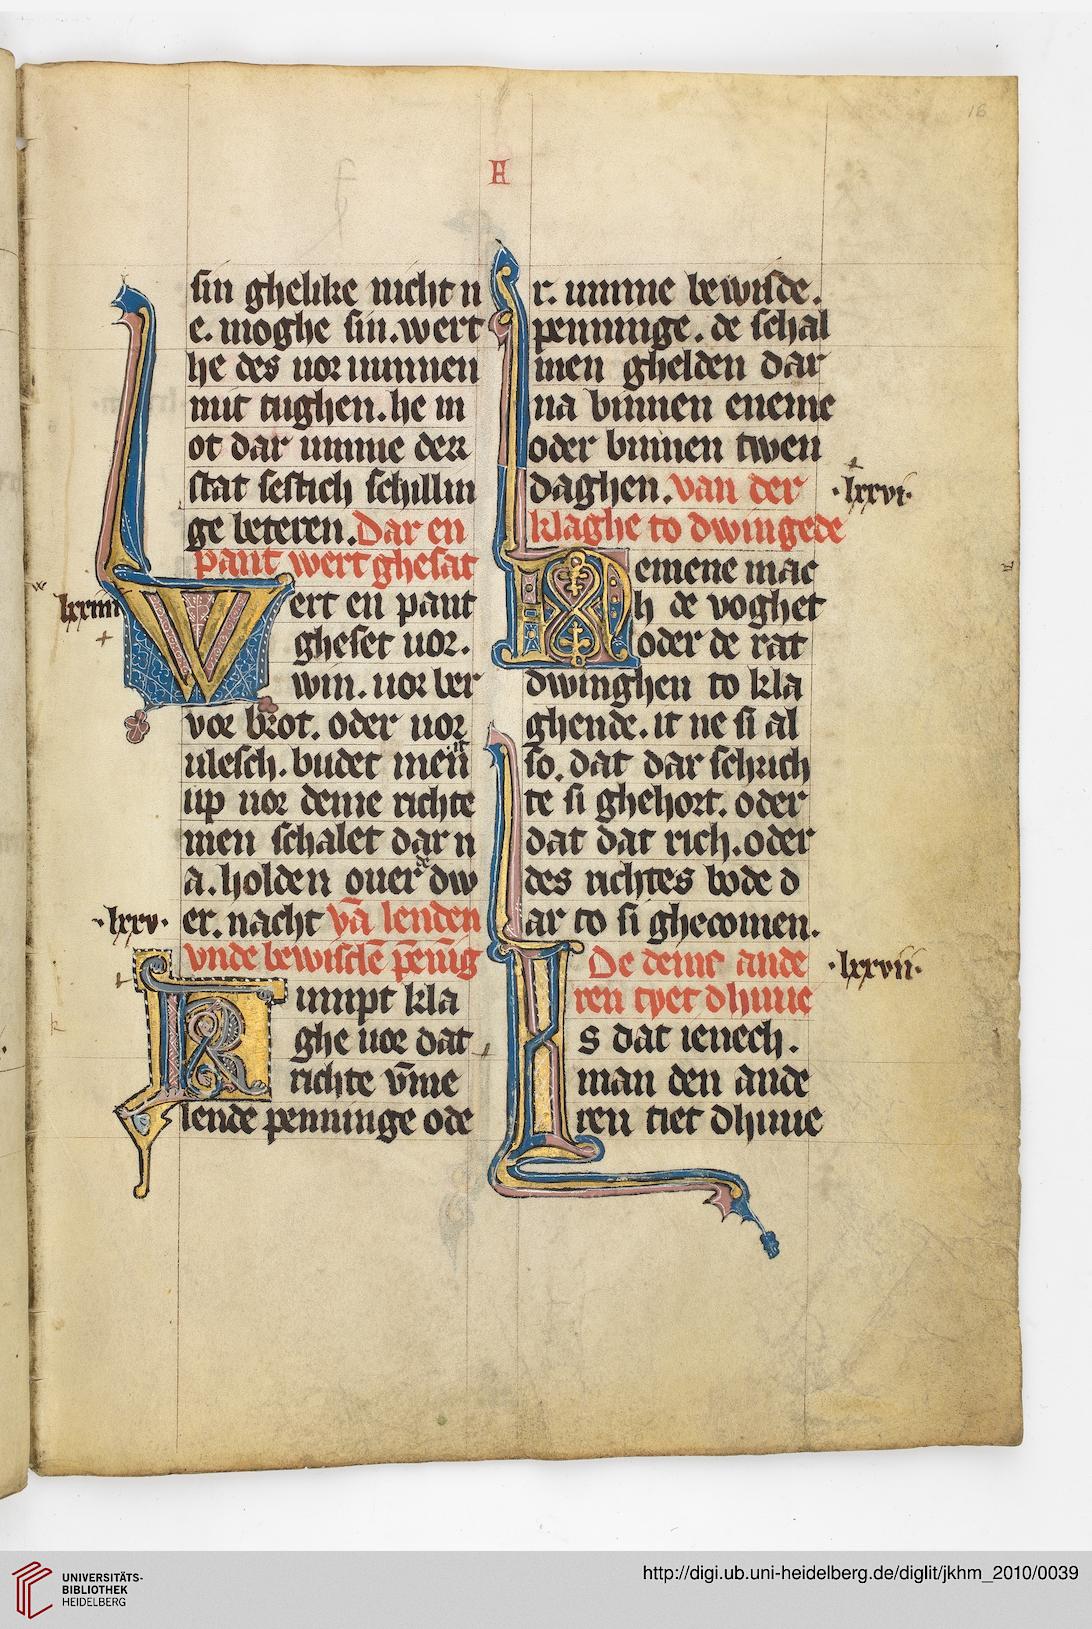 16
E
sin ghelike nicht n
e. moghe sin. wert
he des uor wnnen
mit tughen. he m
ot dar umme der
stat sestich schillin
ge beteren. Dar en
pant wert ghesat
lxxiiii
Wert en pant
gheset uor.
win. uor ber
vor brot. oder uor
vlesch. budet men it
up uor deme richte
men schalet dar n
a. holden ouer de dw
er. nacht vā lenden
·lxxv·
vnde bewisdē pēnīg
Kumpt kla
ghe uor dat
richte v̄me
lende penninge ode
r. umme bewisde.
penninge. de schal
men ghelden dar
na binnen eneme
oder binnen twen
daghen. van der
·lxxvi·
klaghe to dwingede
Nemene mac
h de voghet
oder de rat
dwinghen to kla
ghende. it ne si al
so. dat dar schrich
te si ghehort. oder
dat dat rich. oder
des richtes bode d
ar to si ghecomen.
De deme ande
·lxxvii·
ren tyet dhuue
Is dat ienech.
man den ande
ren tiet dhuue
UNIVERSITÄTS-
BIBLIOTHEK
HEIDELBERG
http://digi.ub.uni-heidelberg.de/diglit/jkhm_2010/0039